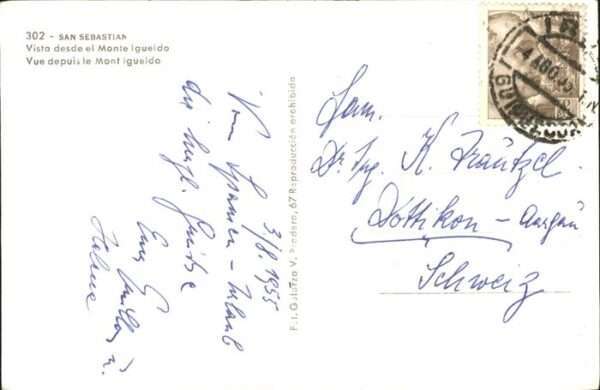 302 - SAN SEBASTIAN
Vista desde el Monte Igueldo
Vue depuis le Mont Igueldo
3/8. 1955
Vom Spanien-Urlaub
die herzl. Grüsse
Eure
Helene
F. I. Galarza V. 67 Reproducción prohibida
Fam.
Dr. Ing. K. Träutzel
Dottikon - Aargau
Schweiz
4 AGO 55